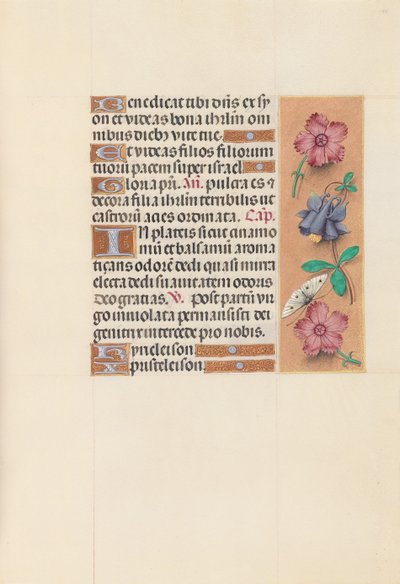 Benedicat tibi dñs ex sy
on et videas bona ihrlm om
nibus dieb9 vite tue.
Et videas filios filiorum
tuorũ pacem super israel
Gloria pr̃i. Añ. pulcra es ⁊
decora filia ihrlm terribilis ut
castrorũ acies ordinata. Cap.
IN plateis sicut cinamo
mũ et balsamũ aroma
tiçans odorẽ dedi quasi mirra
electa dedi suavitatem odoris
Deo gratias. V. Post partũ vir
go inviolata permansisti dei
genitrix intercede pro nobis.
Kyrieleison.
Xpristeleison.